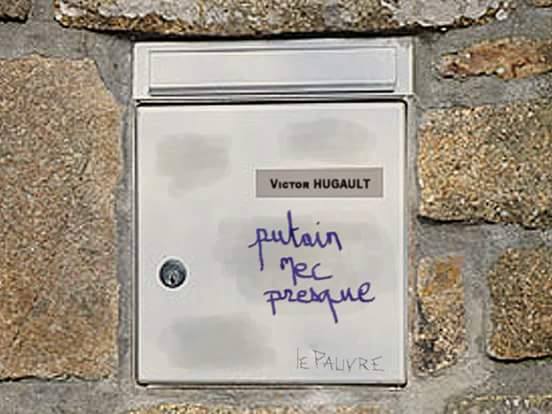 Victor HUGAULT
putain
Mec
presque
le PAUVRE